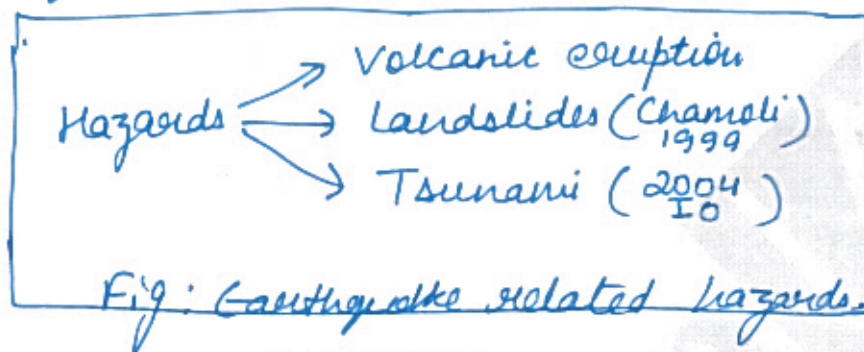 Volcanic eruption
Hazards → Landslides (Chamoli 1999)
Tsunami (2004 IO)
Fig: Earthquake related hazards.